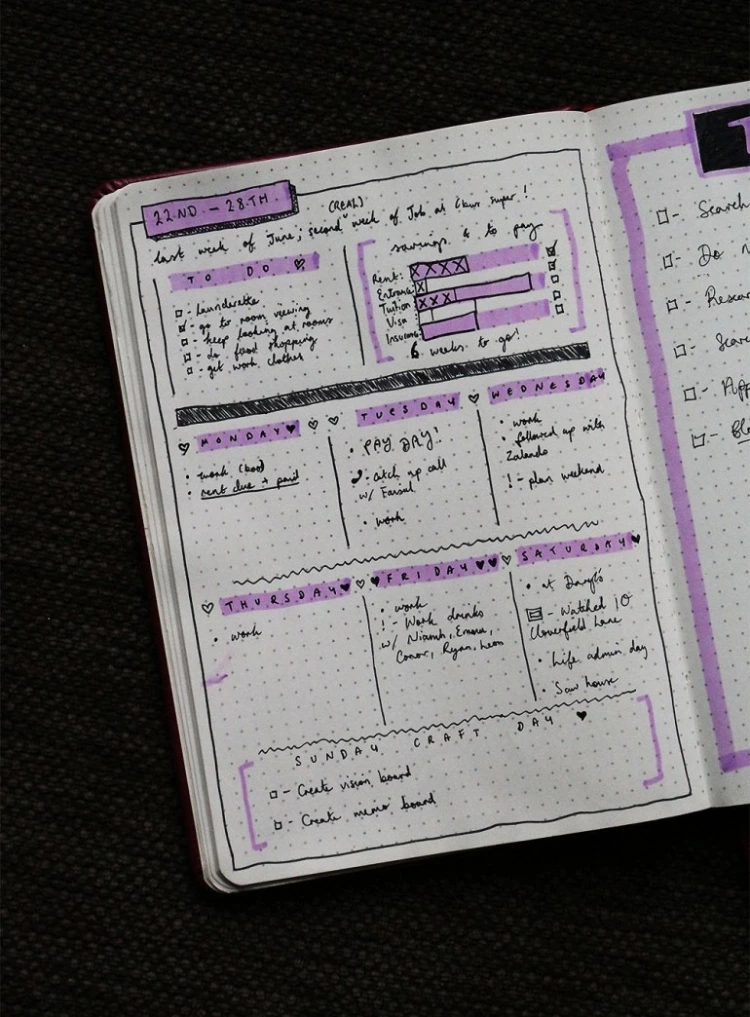 22ND - 28TH
(REAL)
last week of June; second week of Job as super!
TO DO
- launderette
- go to room viewing
- keep looking at rooms
- do food shopping
- get work clothes
savings & to pay
Rent:
XXXX
Entrance:
X
Tuition:
XXX
Visa
Insurance:
6 weeks to go!
MONDAY
• work
• rent due + paid
TUESDAY
• PAY DAY!
- catch up call
w/
• work
WEDNESDAY
• work
• followed up with
Zalando
! - plan weekend
THURSDAY
• work
FRIDAY
• work
! - Work drinks
w/ Niamh, Emma,
Conor, Ryan, Leon
SATURDAY
• at
- Watched 10
Cloverfield Lane
• Life admin day
• Saw house
SUNDAY CRAFT DAY
- Create vision board
- Create memo board
- Search
- Do
- Resear